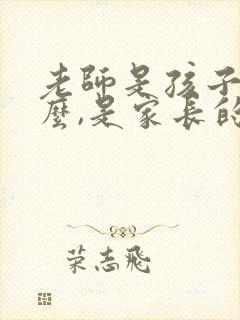 老師是孩子
麼,是家長的
荣志飛